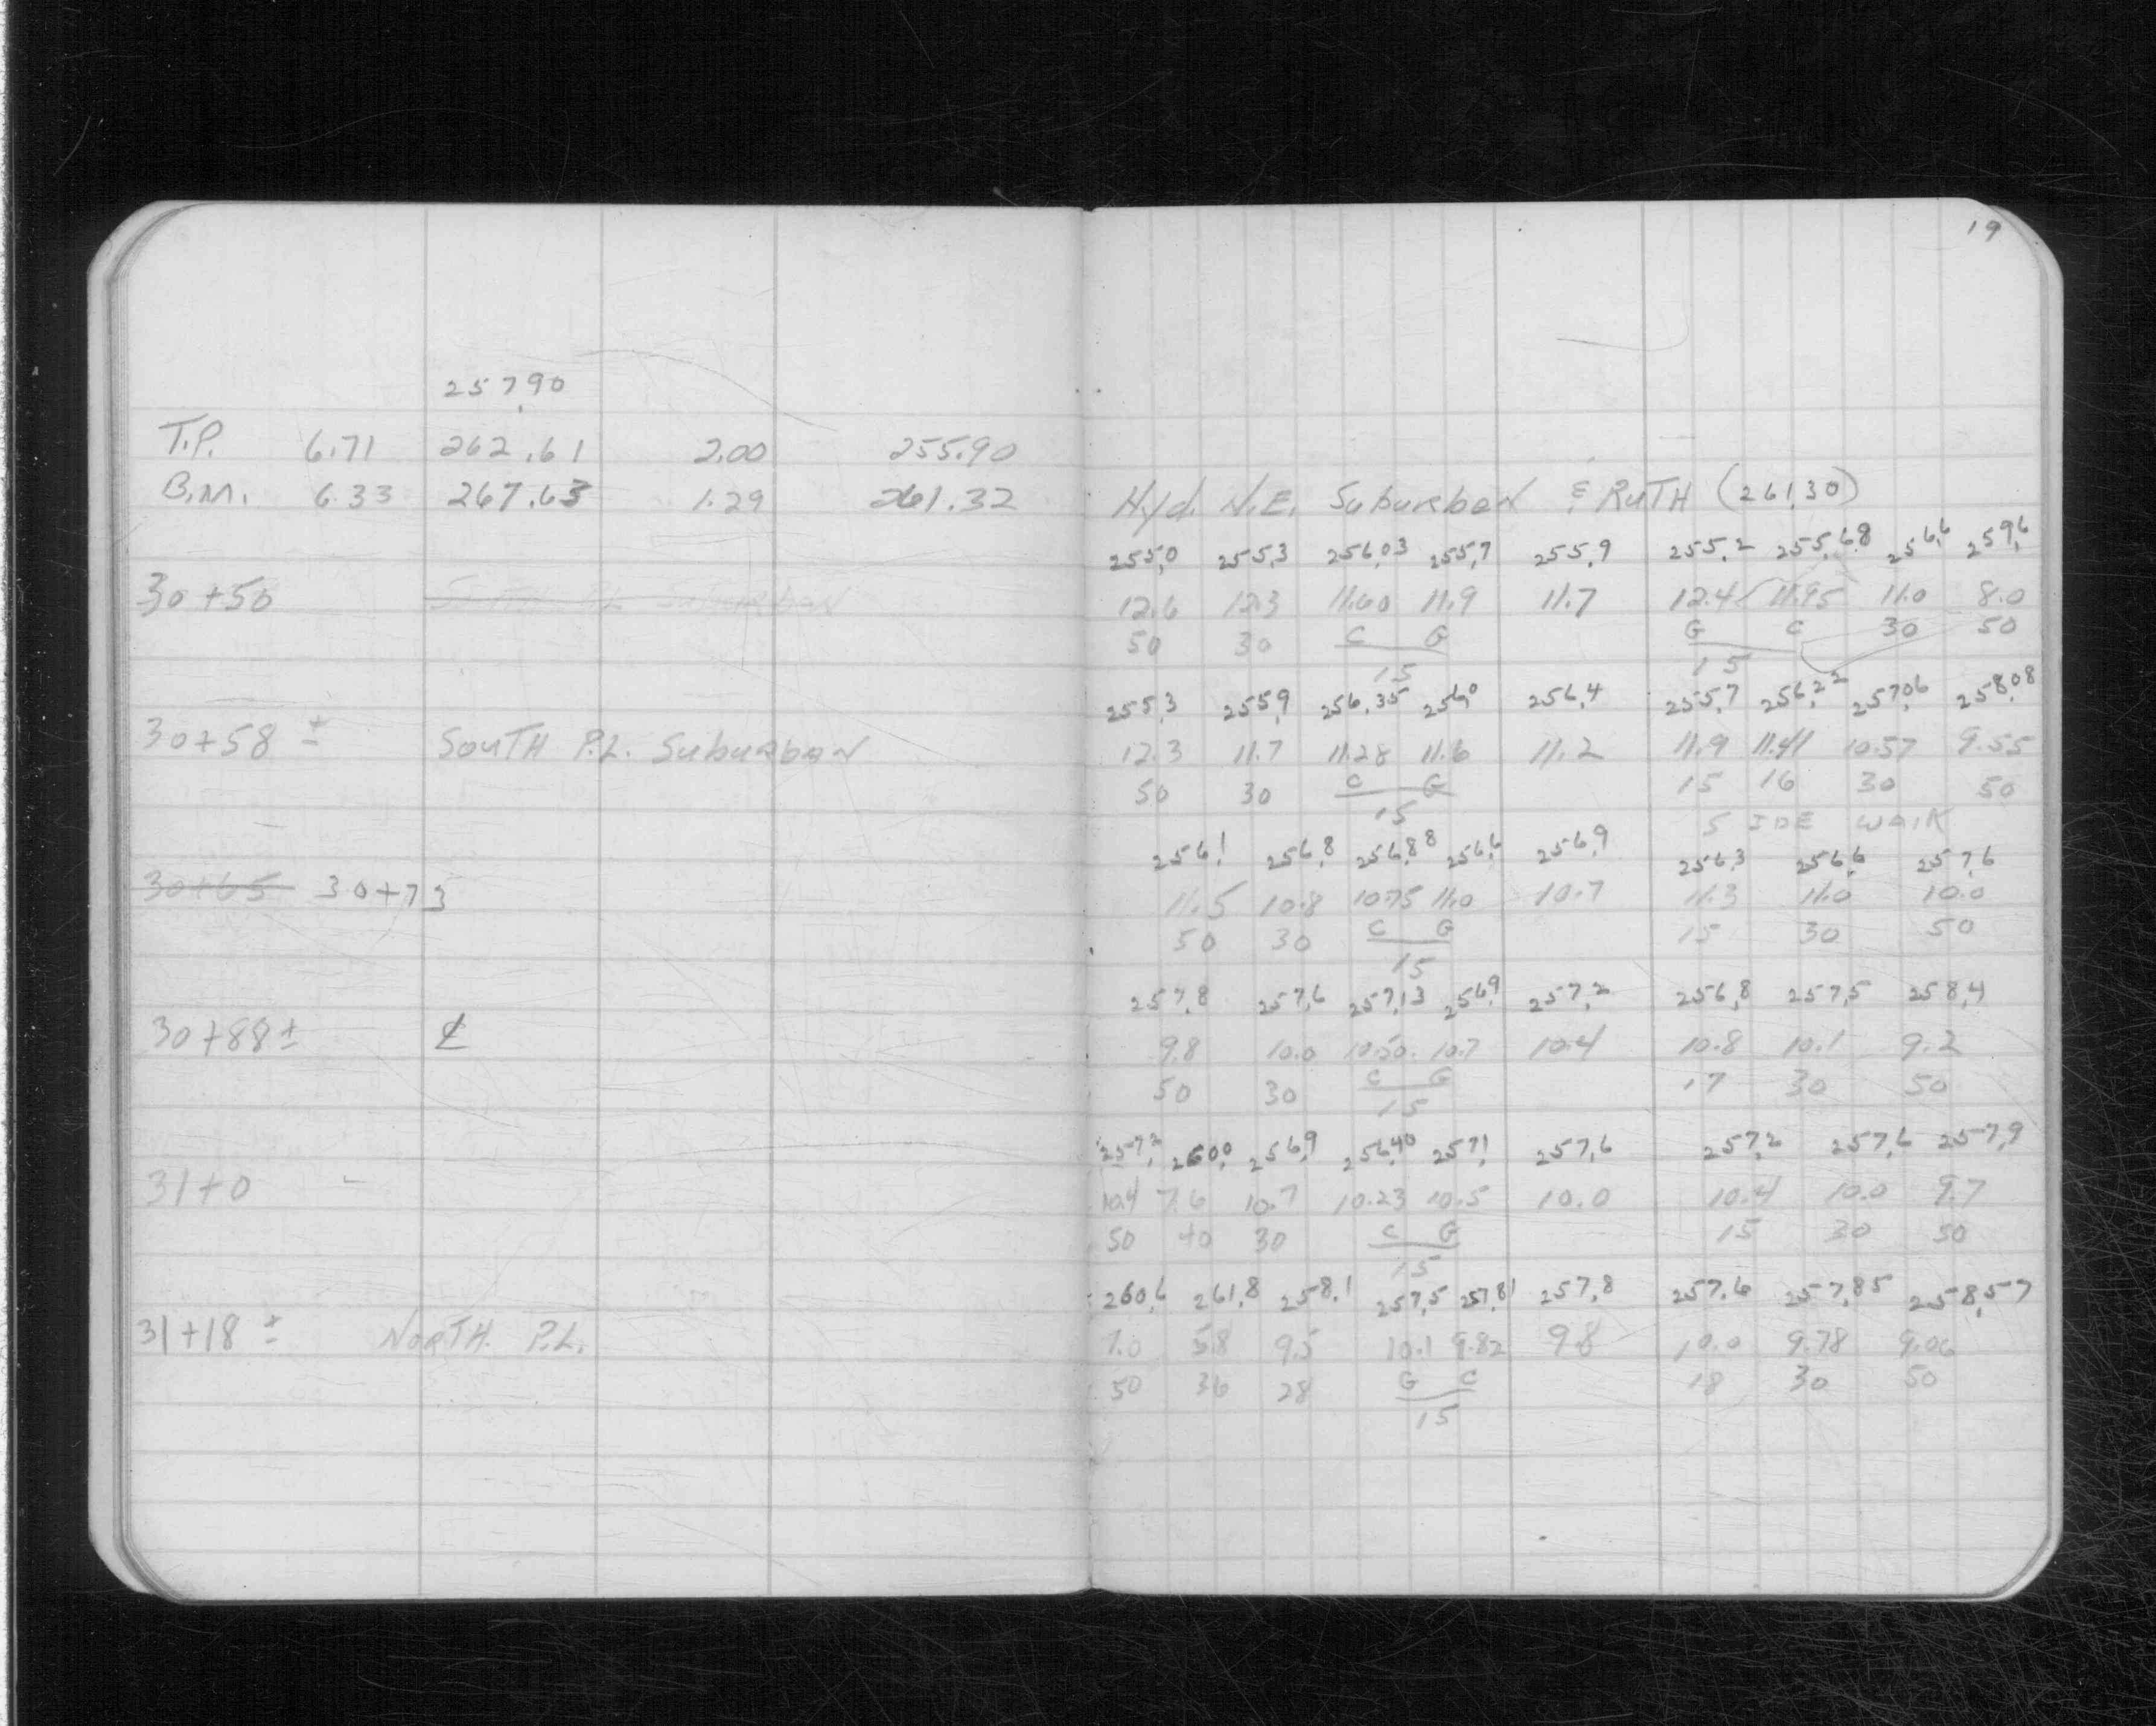 19
257.90
T.P. 6.71 262.61 2.00 255.90
B.M. 6.33 267.63 1.29 261.32 Hyd. N.E. Suburban & RUTH (261.30)
255.0 255.3 256.03 255.7 255.9 255.2 255.68 256.6 259.6
30+50 12.6 12.3 11.60 11.9 11.7 12.4 11.95 11.0 8.0
50 30 C G G C 30 50
15 15
255.3 255.9 256.35 256.0 256.4 255.7 256.22 257.06 258.08
30+58 ± SOUTH P.L. Suburban 12.3 11.7 11.28 11.6 11.2 11.9 11.41 10.57 9.55
50 30 C G 15 16 30 50
15 SIDE WALK
256.1 256.8 256.88 256.6 256.9 256.3 256.6 257.6
30+65 30+73 11.5 10.8 10.75 11.0 10.7 11.3 11.0 10.0
50 30 C G 15 30 50
15
257.8 257.6 257.13 256.9 257.2 256.8 257.5 258.4
30+88± ℄ 9.8 10.0 10.50 10.7 10.4 10.8 10.1 9.2
50 30 C G 17 30 50
15
257.2 260.0 256.9 256.40 257.1 257.6 257.2 257.6 257.9
31+0 10.4 7.6 10.7 10.23 10.5 10.0 10.4 10.0 9.7
50 40 30 C G 15 30 50
15
260.6 261.8 258.1 257.5 257.81 257.8 257.6 257.85 258.57
31+18 ± NORTH. P.L. 7.0 5.8 9.5 10.1 9.82 9.8 10.0 9.78 9.06
50 36 28 G C 18 30 50
15